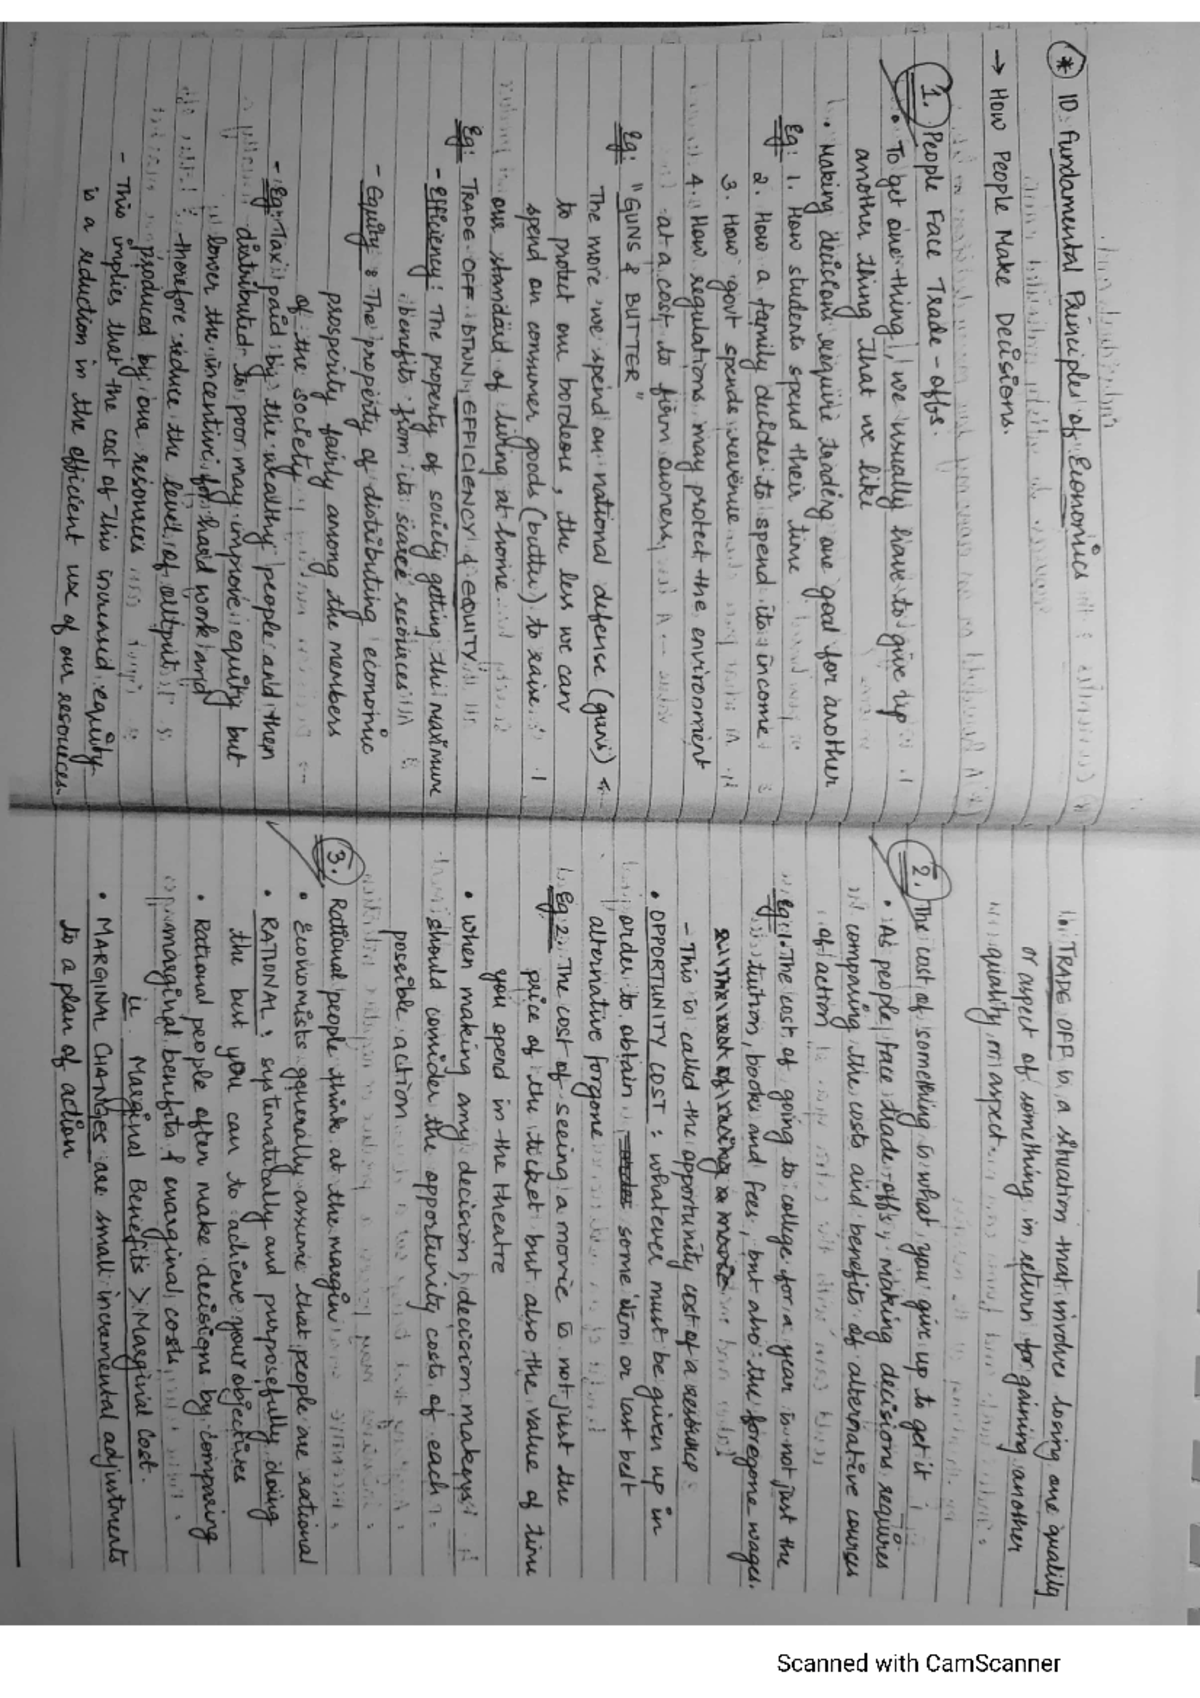 * 10 Fundamental Principles of Economics
→ How People Make Decisions.
1. People Face Trade-offs.
• To get one thing, we usually have to give up
another thing that we like
• Making decisions require trading one goal for another
Eg: 1. How students spend their time
2. How a family decides to spend its income
3. How govt spends revenue
4. How regulations may protect the environment
at a cost to firm owners
Eg: "GUNS & BUTTER"
The more we spend on national defense (guns)
to protect our borders, the less we can
spend on consumer goods (butter) to raise
our standard of living at home
Eg: TRADE-OFF BTWN EFFICIENCY & EQUITY
- Efficiency: The property of society getting the maximum
benefits from its scarce resources
- Equity: The property of distributing economic
prosperity fairly among the members
of the society
- Eg: Tax paid by the wealthy people and then
distributed to poor may improve equity but
lower the incentive for hard work and
therefore reduce the level of output
produced by our resources
- This implies that the cost of this increased equity
is a reduction in the efficient use of our resources.
TRADE OFF is a situation that involves losing one quality
or aspect of something in return for gaining another
quality or aspect
2. The cost of something is what you give up to get it
• As people face trade-offs, making decisions requires
comparing the costs and benefits of alternative courses
of action
Eg 1. The cost of going to college for a year is not just the
tuition, books and fees, but also the foregone wages.
- This is called the opportunity cost of a resource
• OPPORTUNITY COST: whatever must be given up in
order to obtain some item or last best
alternative forgone
Eg 2. The cost of seeing a movie is not just the
price of the ticket but also the value of time
you spend in the theatre
• When making any decision, decision makers
should consider the opportunity costs of each
possible action
3. Rational people think at the margin
• Economists generally assume that people are rational
• RATIONAL: systematically and purposefully doing
the but you can to achieve your objectives
• Rational people often make decisions by comparing
marginal benefits & marginal costs
ie Marginal Benefits > Marginal Cost.
• MARGINAL CHANGES are small incremental adjustments
to a plan of action
Scanned with CamScanner